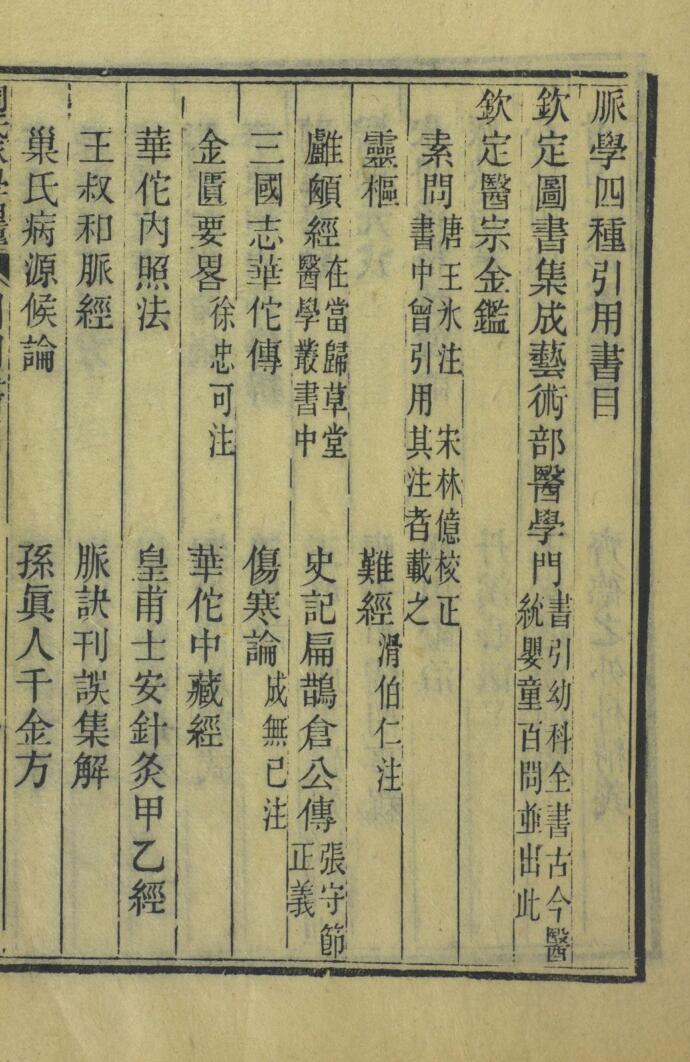 脈學四種引用書目
欽定圖書集成藝術部醫學門書引幼科全書古今醫統嬰童百問並出此
欽定醫宗金鑑
素問唐王氷注 宋林億校正書中曾引用其注者載之
靈樞 難經滑伯仁注
顱顖經在當歸草堂醫學叢書中 史記扁鵲倉公傳張守節正義
三國志華佗傳 傷寒論成無已注
金匱要畧徐忠可注 華佗中藏經
華佗內照法 皇甫士安針灸甲乙經
王叔和脈經 脈訣刊誤集解
巢氏病源候論 孫眞人千金方